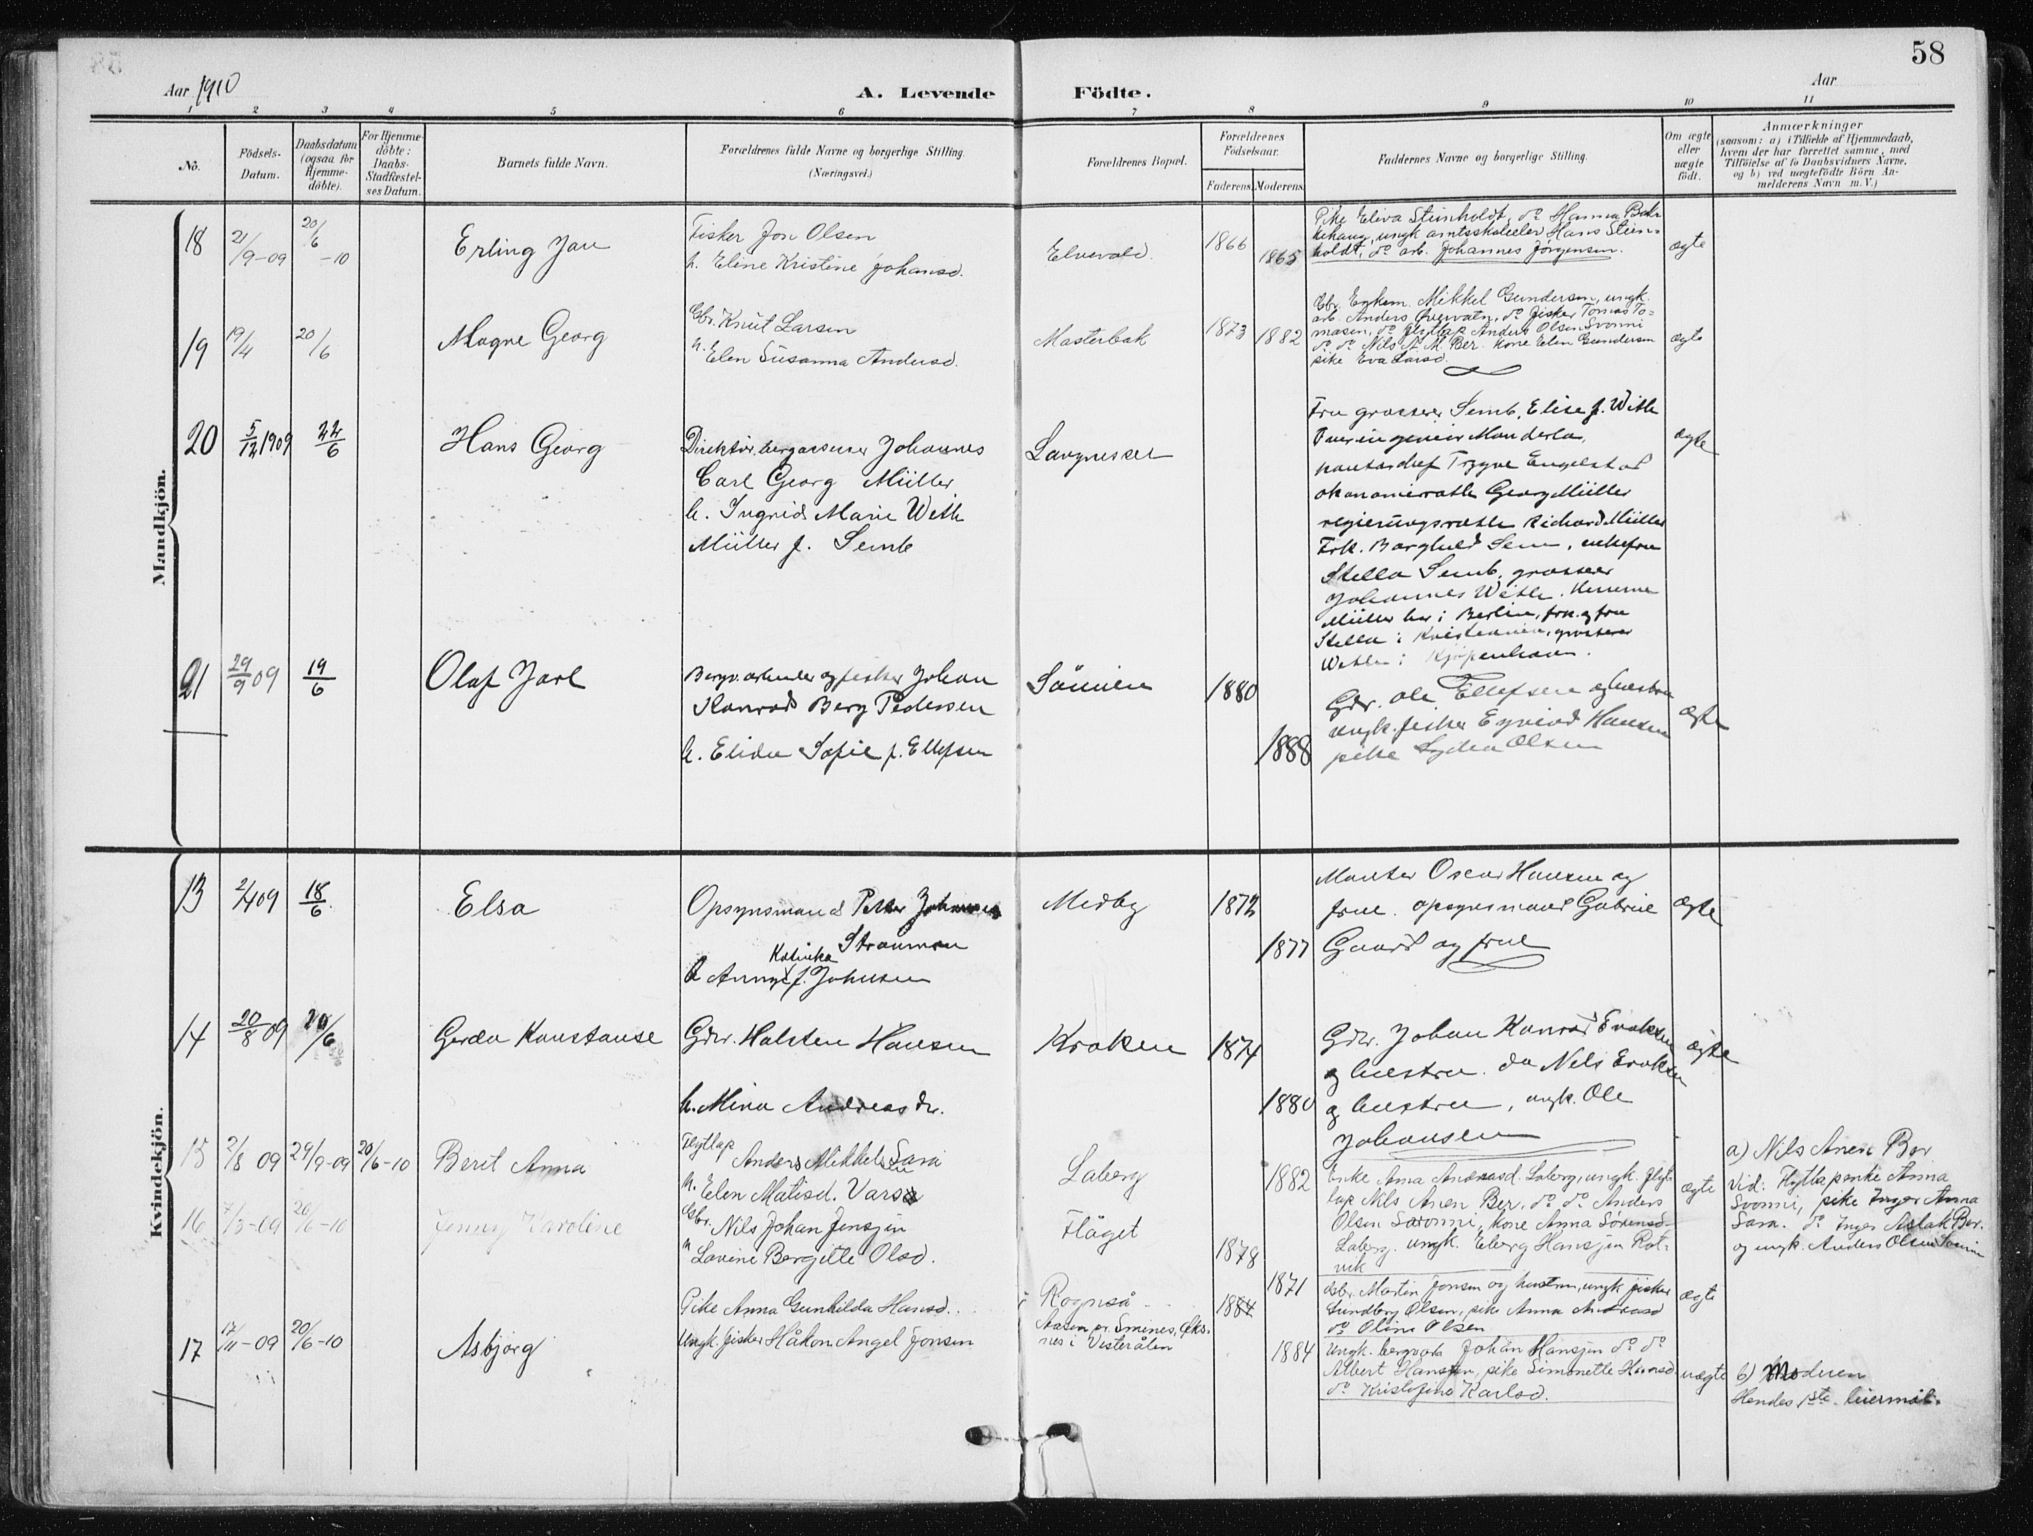 58
Aar 1910
A. Levende Födte.
Aar
1 2 3 4 5 6 7 8 9 10 11
No.
Födsels-Datum.
Daabsdatum (ogsaa for Hjemmedöbte).
For Hjemmedöbte: Daabs-Stadfæstelses Datum.
Barnets fulde Navn.
Forældrenes fulde Navne og borgerlige Stilling. (Næringsvei.)
Forældrenes Bopæl.
Forældrenes Födselsaar.
Faderens. Moderens.
Faddernes Navne og borgerlige Stilling.
Om ægte eller uægte födt.
Anmærkninger
(saasom: a) i Tilfælde af Hjemmedaab,
hvem der har forrettet samme, med
Tilföielse af to Daabsvidners Navne,
og b) ved uægtefödte Börn An-
melderens Navn m. V.)
Mandkjön.
18 21/9-09 20/6-10 Erling Jan
Fisker Jon Olsen
h. Eline Kristine Johansd.
Elvevold. 1866 1865
Pike Eliva Steinholdt, do Hanna
ungk. amtsskoleelev Hans Stein-
holdt, do arb. Johannes Jørgensen.
ægte
19 19/4 20/6 Magne Georg
Gbr. Knut Larsen
h. Elen Susanna Andersd.
Masterbak 1873 1882
Gbr. Enkem. Mikkel Gundersen, ungk.
arb. Anders do fisker Tomas To-
masen, do flytlap Anders Olsen Svonni
do do Nils N. M. Ber. kone Elen Gundersen
pike Eva Larsd.
ægte
20 5/12 1909 22/6 Hans Georg
Direktör, bergassessor Johannes
Carl Georg Müller
h. Ingrid Marie Weth
Müller f. Semb
Lavgnesset
Fru grosserer Semb, Elise f. Weth
Overingeniör
Trygve Engelstad
økonomierath Georg Müller
regierungsrath Richard Müller
Frk. Borghild Sem, enkefru
Stella Semb, grosserer
Johannes Weth. Herrerne
Müller bor i Berlin, fru og frue
Stella i Kristiania, grosserer
Weth i Kjöpenhavn.
ægte
21 29/9 09 19/6 Olaf Jarl
Bergv.arbeider og fisker Johan
Konrad Berg Pedersen
h. Elida Sofie f. Ellefsen
Sömien 1880 1888
Gbr. Ole Ellefsen og hustru
ungk. fisker Eyvind Hansen
pike Lydia Olsen
ægte
Kvindekjön.
13 2/4 09 18/6 Elsa
Opsynsmand Petter Johnsen
Straumen
h Anna Katinka f. Johnsen
Medby 1872 1877
Montør Oscar Hansen og
frue. opsynsmand Gabriel
Gaard og frue
ægte
14 20/8 09 20/6 Gerda Konstanse
Gbr. Halsten Hansen
h. Mina Andreasdr.
Kroken 1874 1880
Gbr. Johan Konrad
og hustru. do Nils
og hustru, ungk. Ole
Johansen
ægte
15 2/8 09 29/9-09 20/6-10 Berit Anna
Flytlap Anders Mikkels. Sara
h. Elen Matisd. Vars
Laberg 1882
Enke Anna Andreasd. Laberg, ungk. flyt-
lap Nils Anen Ber. do do Anders
Olsen Svonni, kone Anna Sørensd.
Laberg. ungk. Eberg Hansjen Rot-
vik
ægte
a) Nils Anen Ber
Vid: Flytlapenke Anna
Svonni, pike Inger Anna
Sara. do Inger Aslak Ber.
og ungk. Anders Olsen Svonni
16 7/3-09 20/6-10 Jenny Karoline
Gbr. Nils Johan Jensjen
h Lavine Bergitte Olsd.
Flåget 1878 1871
Gbr. Martin Jonsen og hustru, ungk fisker
Lundberg Olsen, pike Anna Andreasd
do Oline Olsen
ægte
17 17/11-09 20/6-10 Asbjørg
Pike Anna Gunhilda Hansd.
Ungk. fisker Håkon Angel Jonsen
Rognså
Aasen pr. Smines, Øks-
nes i Vesterålen
1884 1884
Ungk. bergvarb Johan Hansjen do do
Albert Hansjen, pike Simonette Hansd.
do Kristofine Karlsd.
uægte
b) Moderen
Hendes 1ste leiermål.